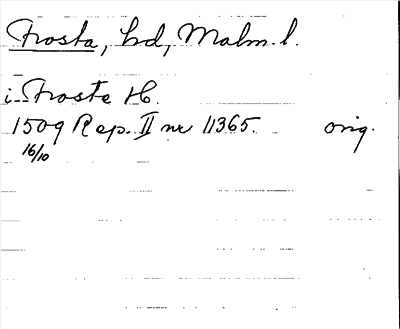 Frosta, hd, Malm. l.
i Froste H.
1509 Rep. II nr 11365. orig.
16/10